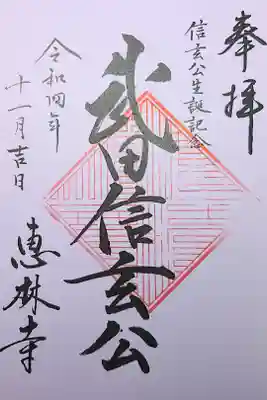 奉拝
信玄公生誕記念
武田信玄公
令和四年
十一月吉日
恵林寺